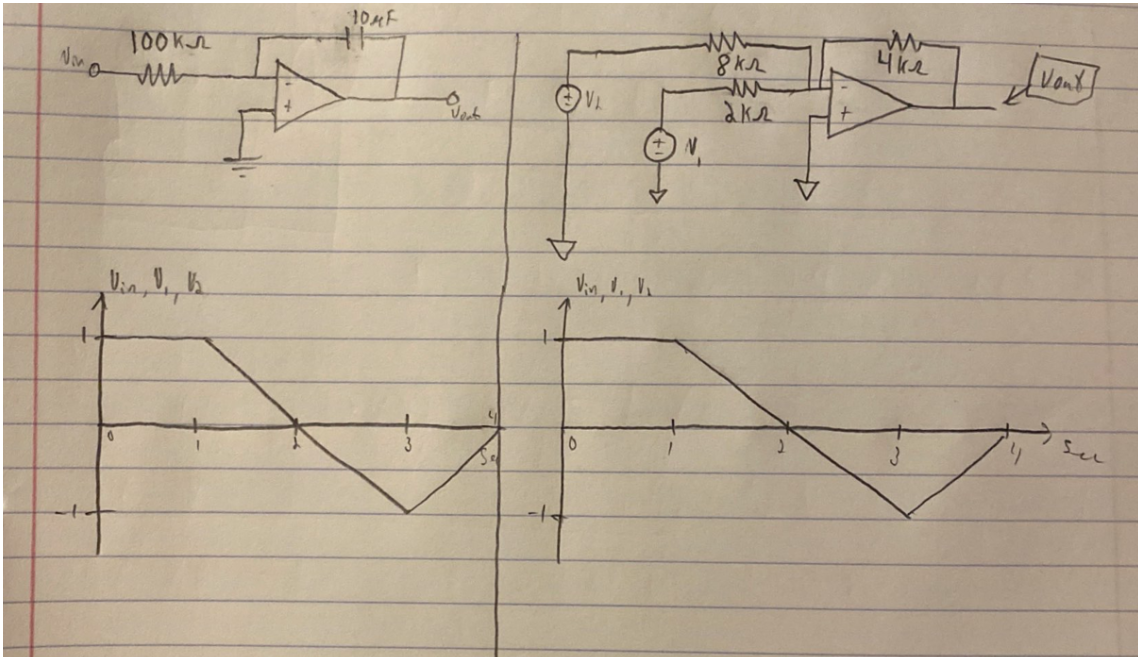 10μF
100kΩ
Vin
-
+
Vout
8kΩ
4kΩ
Vout
2kΩ
-
+
+
-
V2
+
-
V1
Vin, V1, V2
1
0
1
2
3
4
Sec
-1
Vin, V1, V2
1
0
1
2
3
4
Sec
-1